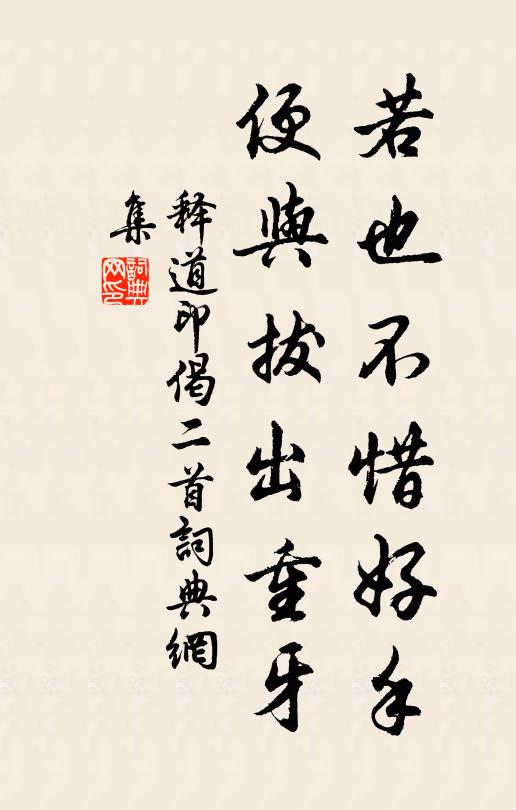 若也不惜好手
便與拔出重牙
释道印偈二首詞典網
集
詞典
网印